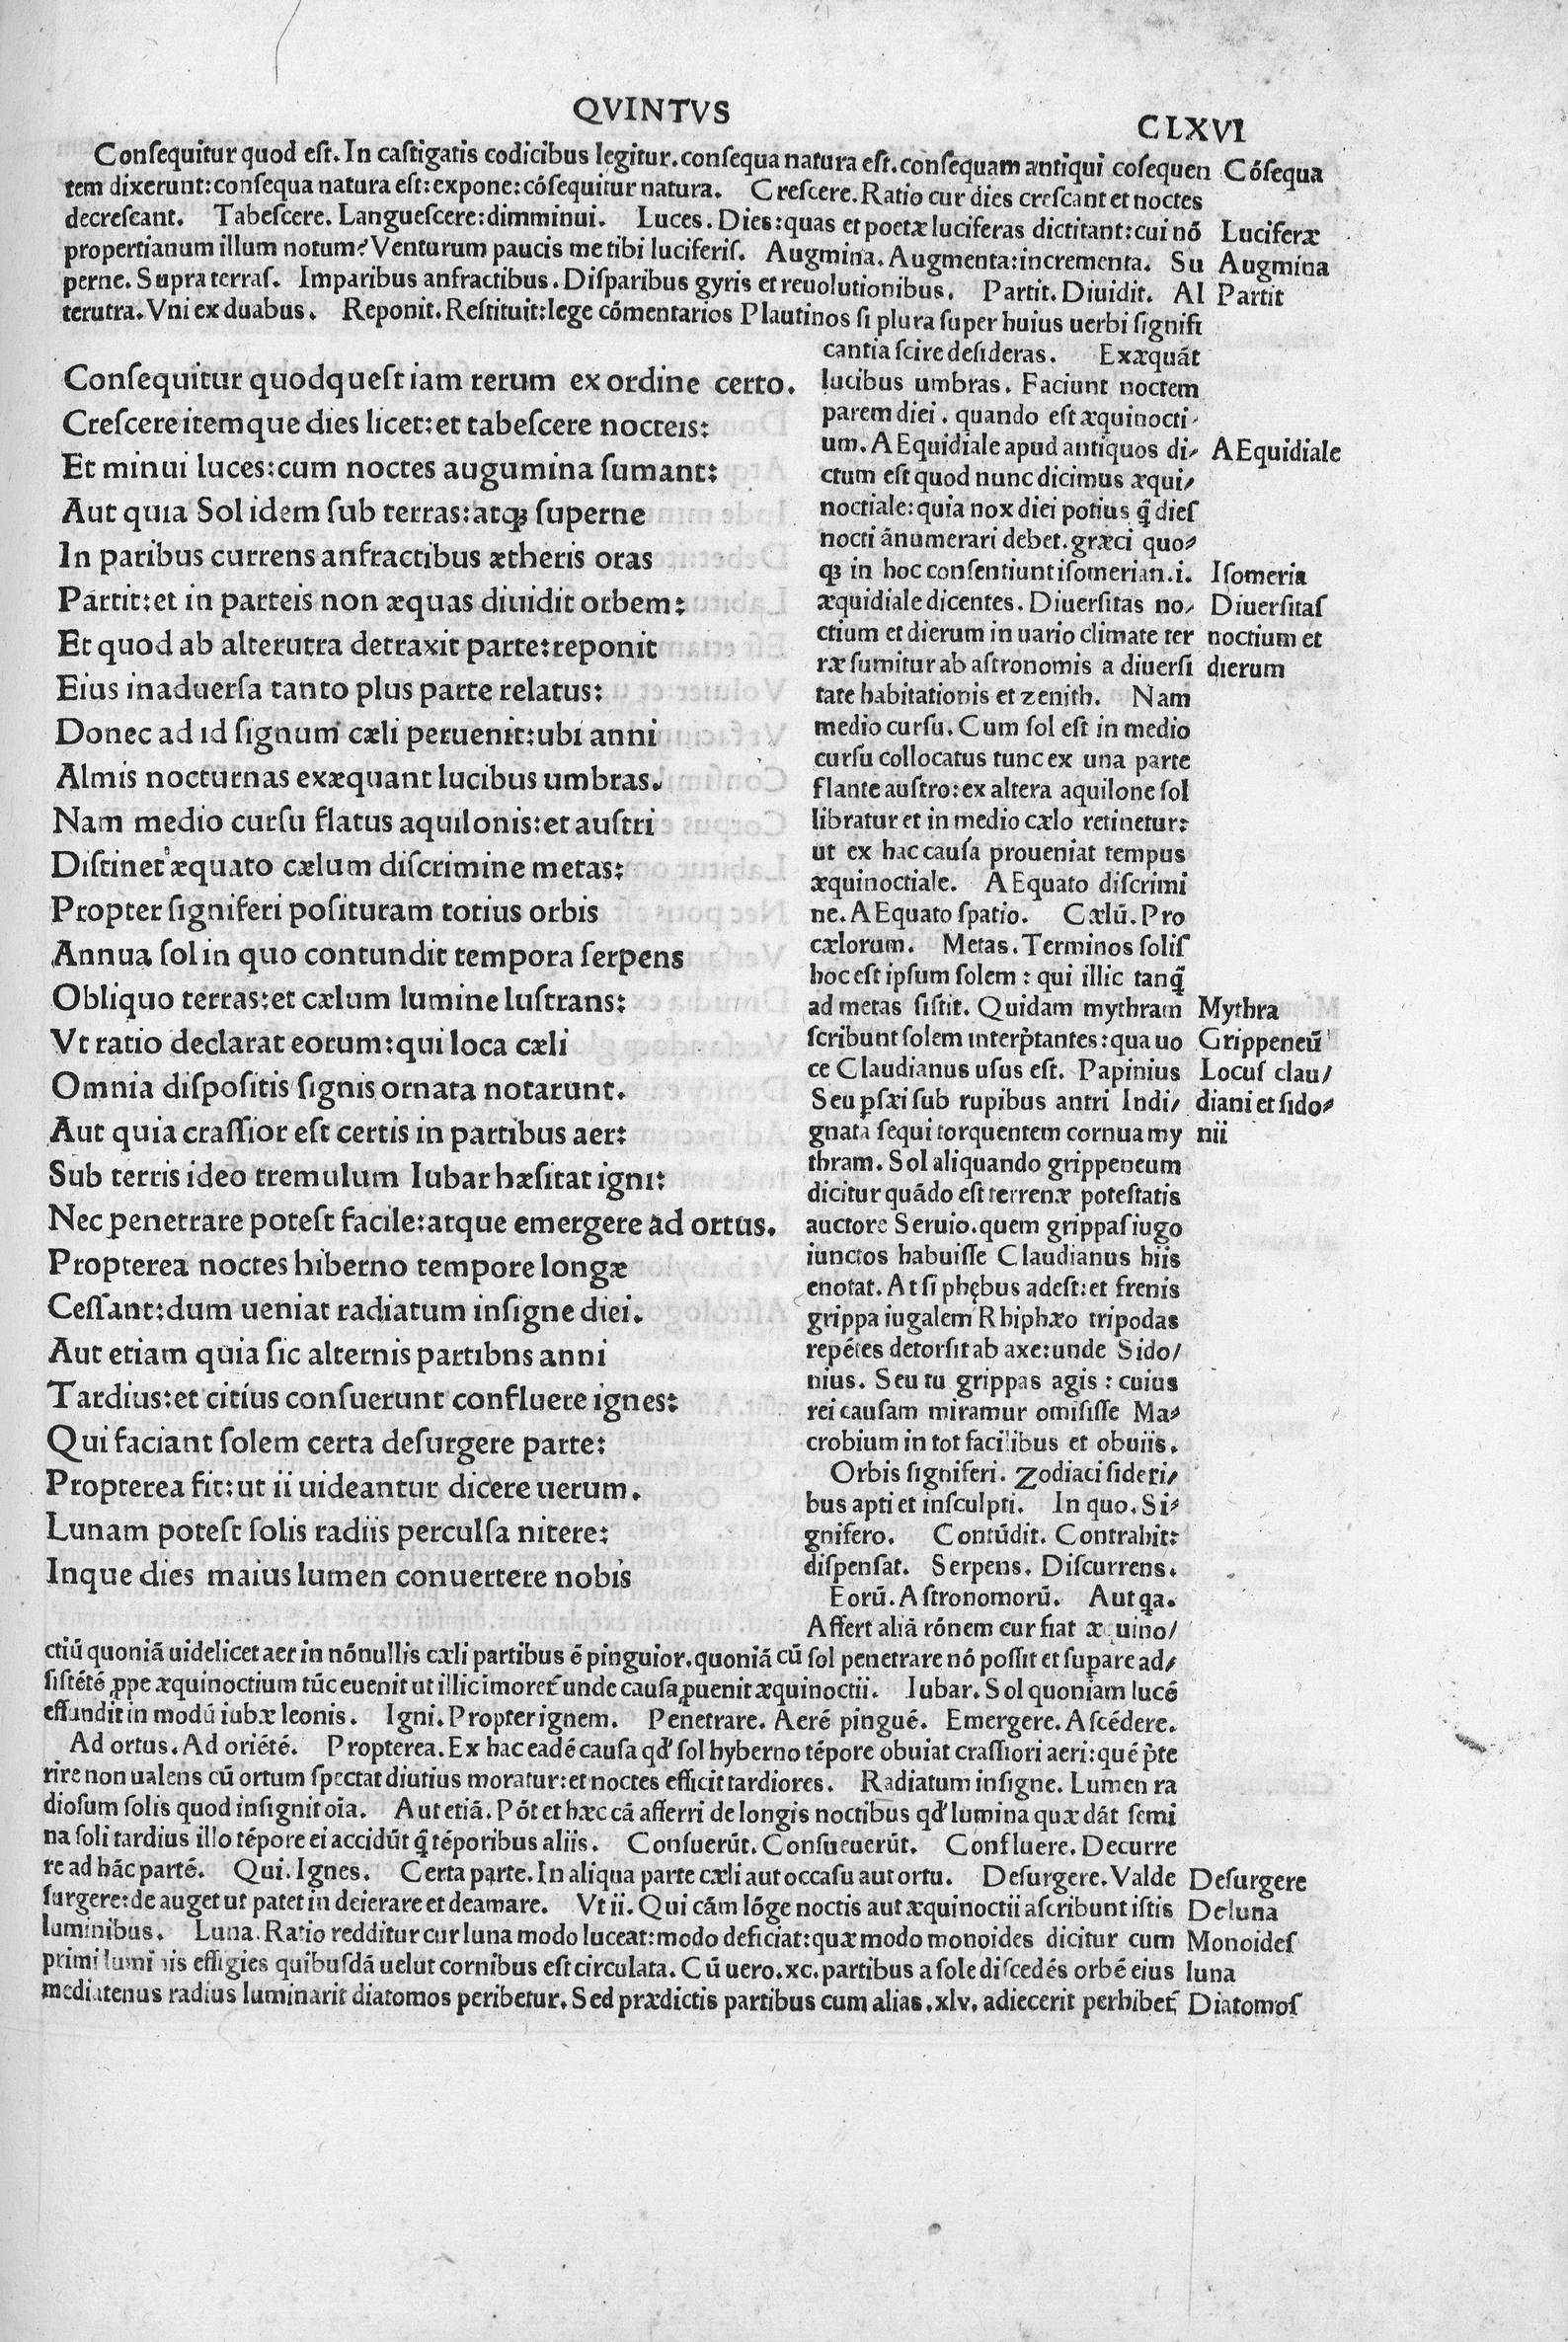 QVINTVS
CLXVI
Conſequitur quod eſt. In caſtigatis codicibus legitur. conſequa natura eſt. conſequam antiqui coſequen
tem dixerunt: conſequa natura eſt: expone: cóſequitur natura. Creſcere. Ratio cur dies creſcant et noctes
decreſcant. Tabeſcere. Langueſcere: dimminui. Luces. Dies: quas et poetæ luciferas dictitant: cui nō
propertianum illum notum? Venturum paucis me tibi luciferiſ. Augmina. Augmenta: incrementa. Su
perne. Supra terraſ. Imparibus anfractibus. Diſparibus gyris et reuolutionibus. Partit. Diuidit. Al
terutra. Vni ex duabus. Reponit. Reſtituit: lege cōmentarios Plautinos ſi plura ſuper huius uerbi ſignifi
Cóſequa
Luciferæ
Augmina
Partit
Conſequitur quodqueſt iam rerum ex ordine certo.
Creſcere itemque dies licet: et tabeſcere nocteis:
Et minui luces: cum noctes augumina ſumant:
Aut quia Sol idem ſub terras: atqꝫ ſuperne
In paribus currens anfractibus ætheris oras
Partit: et in parteis non æquas diuidit orbem:
Et quod ab alterutra detraxit parte: reponit
Eius inaduerſa tanto plus parte relatus:
Donec ad id ſignum cæli peruenit: ubi anni
Almis nocturnas exæquant lucibus umbras.
Nam medio curſu flatus aquilonis: et auſtri
Diſtinet æquato cælum diſcrimine metas:
Propter ſigniferi poſituram totius orbis
Annua ſol in quo contundit tempora ſerpens
Obliquo terras: et cælum lumine luſtrans:
Vt ratio declarat eorum: qui loca cæli
Omnia diſpoſitis ſignis ornata notarunt.
Aut quia craſſior eſt certis in partibus aer:
Sub terris ideo tremulum Iubar hæſitat igni:
Nec penetrare poteſt facile: atque emergere ad ortus.
Propterea noctes hiberno tempore longæ
Ceſſant: dum ueniat radiatum inſigne diei.
Aut etiam quia ſic alternis partibns anni
Tardius: et citius conſuerunt confluere ignes:
Qui faciant ſolem certa deſurgere parte:
Propterea fit: ut ii uideantur dicere uerum.
Lunam poteſt ſolis radiis perculſa nitere:
Inque dies maius lumen conuertere nobis
cantia ſcire deſideras. Exæquāt
lucibus umbras. Faciunt noctem
parem diei. quando eſt æquinocti-
um. AEquidiale apud antiquos di-
ctum eſt quod nunc dicimus æqui-
noctiale: quia nox diei potius q̄ dieſ
nocti ānumerari debet. græci quo-
qꝫ in hoc conſentiunt iſomerian. i.
æquidiale dicentes. Diuerſitas no-
ctium et dierum in uario climate ter
ræ ſumitur ab aſtronomis a diuerſi
tate habitationis et zenith. Nam
medio curſu. Cum ſol eſt in medio
curſu collocatus tunc ex una parte
flante auſtro: ex altera aquilone ſol
libratur et in medio cælo retinetur:
ut ex hac cauſa proueniat tempus
æquinoctiale. AEquato diſcrimi
ne. AEquato ſpatio. Cælū. Pro
cælorum. Metas. Terminos ſoliſ
hoc eſt ipſum ſolem: qui illic tanq̄
ad metas ſiſtit. Quidam mythram
ſcribunt ſolem interp̄tantes: qua uo
ce Claudianus uſus eſt. Papinius
Seu ꝑſæi ſub rupibus antri Indi-
gnata ſequi torquentem cornua my
thram. Sol aliquando grippeneum
dicitur quādo eſt terrenæ poteſtatis
auctore Seruio. quem grippaſ iugo
iunctos habuiſſe Claudianus hiis
enotat. At ſi phębus adeſt: et frenis
grippa iugalem Rhiphæo tripodas
repétes detorſit ab axe: unde Sido-
nius. Seu tu grippas agis: cuius
rei cauſam miramur omiſiſſe Ma-
crobium in tot facilibus et obuiis.
Orbis ſigniferi. Zodiaci ſideri-
bus apti et inſculpti. In quo. Si-
gnifero. Contūdit. Contrahit:
diſpenſat. Serpens. Diſcurrens.
Eorū. Aſtronomorū. Aut qa.
Affert aliā rōnem cur fiat æquino-
AEquidiale
Iſomeria
Diuerſitaſ
noctium et
dierum
Mythra
Grippeneū
Locuſ clau-
diani et ſido-
nii
ctiū quoniā uidelicet aer in nōnullis cæli partibus ē pinguior. quoniā cū ſol penetrare nō poſſit et ſuꝑare ad-
ſiſtété ꝓpe æquinoctium tūc euenit ut illic imoret unde cauſa ꝓuenit æquinoctii. Iubar. Sol quoniam lucé
effundit in modū iubæ leonis. Igni. Propter ignem. Penetrare. Aeré pingué. Emergere. Aſcédere.
Ad ortus. Ad oriété. Propterea. Ex hac eadé cauſa qd' ſol hyberno tépore obuiat craſſiori aeri: qué p̄te
rire non ualens cū ortum ſpectat diutius moratur: et noctes efficit tardiores. Radiatum inſigne. Lumen ra
dioſum ſolis quod inſignit oīa. Aut etiā. Pōt et hæc cā afferri de longis noctibus qd' lumina quæ dāt ſemi
na ſoli tardius illo tépore ei accidūt q̄ téporibus aliis. Conſuerūt. Conſueuerūt. Confluere. Decurre
re ad hāc parté. Qui. Ignes. Certa parte. In aliqua parte cæli aut occaſu aut ortu. Deſurgere. Valde
ſurgere: de auget ut patet in deierare et deamare. Vt ii. Qui cām lōge noctis aut æquinoctii aſcribunt iſtis
luminibus. Luna. Ratio redditur cur luna modo luceat: modo deficiat: quæ modo monoides dicitur cum
primi luminis effigies quibuſdā uelut cornibus eſt circulata. Cū uero. xc. partibus a ſole diſcedés orbé eius
mediatenus radius luminarit diatomos peribetur. Sed prædictis partibus cum alias. xlv. adiecerit perhibet̄
Deſurgere
De luna
Monoideſ
luna
Diatomoſ